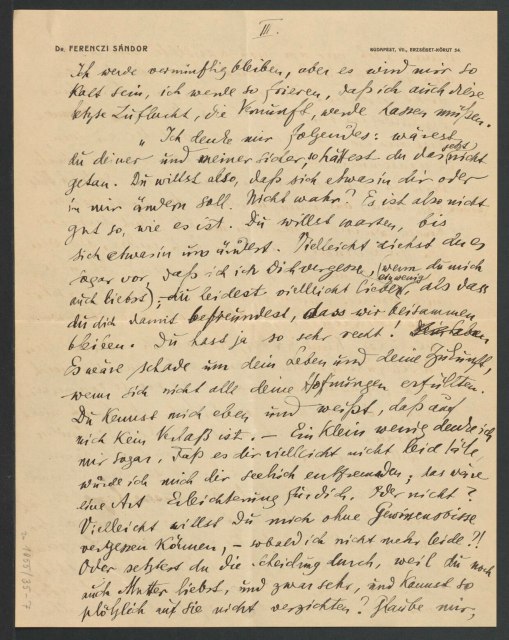 III.
Dr. FERENCZI SÁNDOR
BUDAPEST, VII., ERZSÉBET-KÖRUT 54.
Ich werde vernünftig bleiben, aber es wird mir so
kalt sein, ich werde so frieren, daß ich auch diese
letzte Zuflucht, die Vernunft, werde hassen müssen.
„Ich denke mir folgendes: wärest
du deiner und meiner sicher, so hättest du das jetzt nicht
getan. Du willst also, daß sich etwas in dir oder
in mir ändern soll. Nicht wahr? Es ist also nicht
gut so, wie es ist. Du willst warten, bis
sich etwas in uns ändert. Vielleicht ziehst du es
sogar vor, daß ich Dich vergesse, (wenn du mich
auch liebst), du leidest vielleicht lieber ein wenig, als dass
du dich damit befreundest, dass wir beisammen
bleiben. Du hast ja so sehr recht!
Es wäre schade um dein Leben und deine Zukunft,
wenn sich nicht alle deine Hoffnungen erfüllten.
Du kennst mich eben und weißt, daß auf
mich kein Verlaß ist. – Ein klein wenig denke ich
mir sogar, daß es dir vielleicht nicht leid täte,
würde ich mich dir seelisch entfremden; das wäre
eine Art Erleichterung für dich. Oder nicht?
Vielleicht willst Du mich ohne Gewissensbisse
vergessen können, – sobald ich nicht mehr leide?!
Oder setztest du die Scheidung durch, weil du noch
auch Mutter liebst, und zwar sehr, und kannst so
plötzlich auf sie nicht verzichten? Glaube mir,